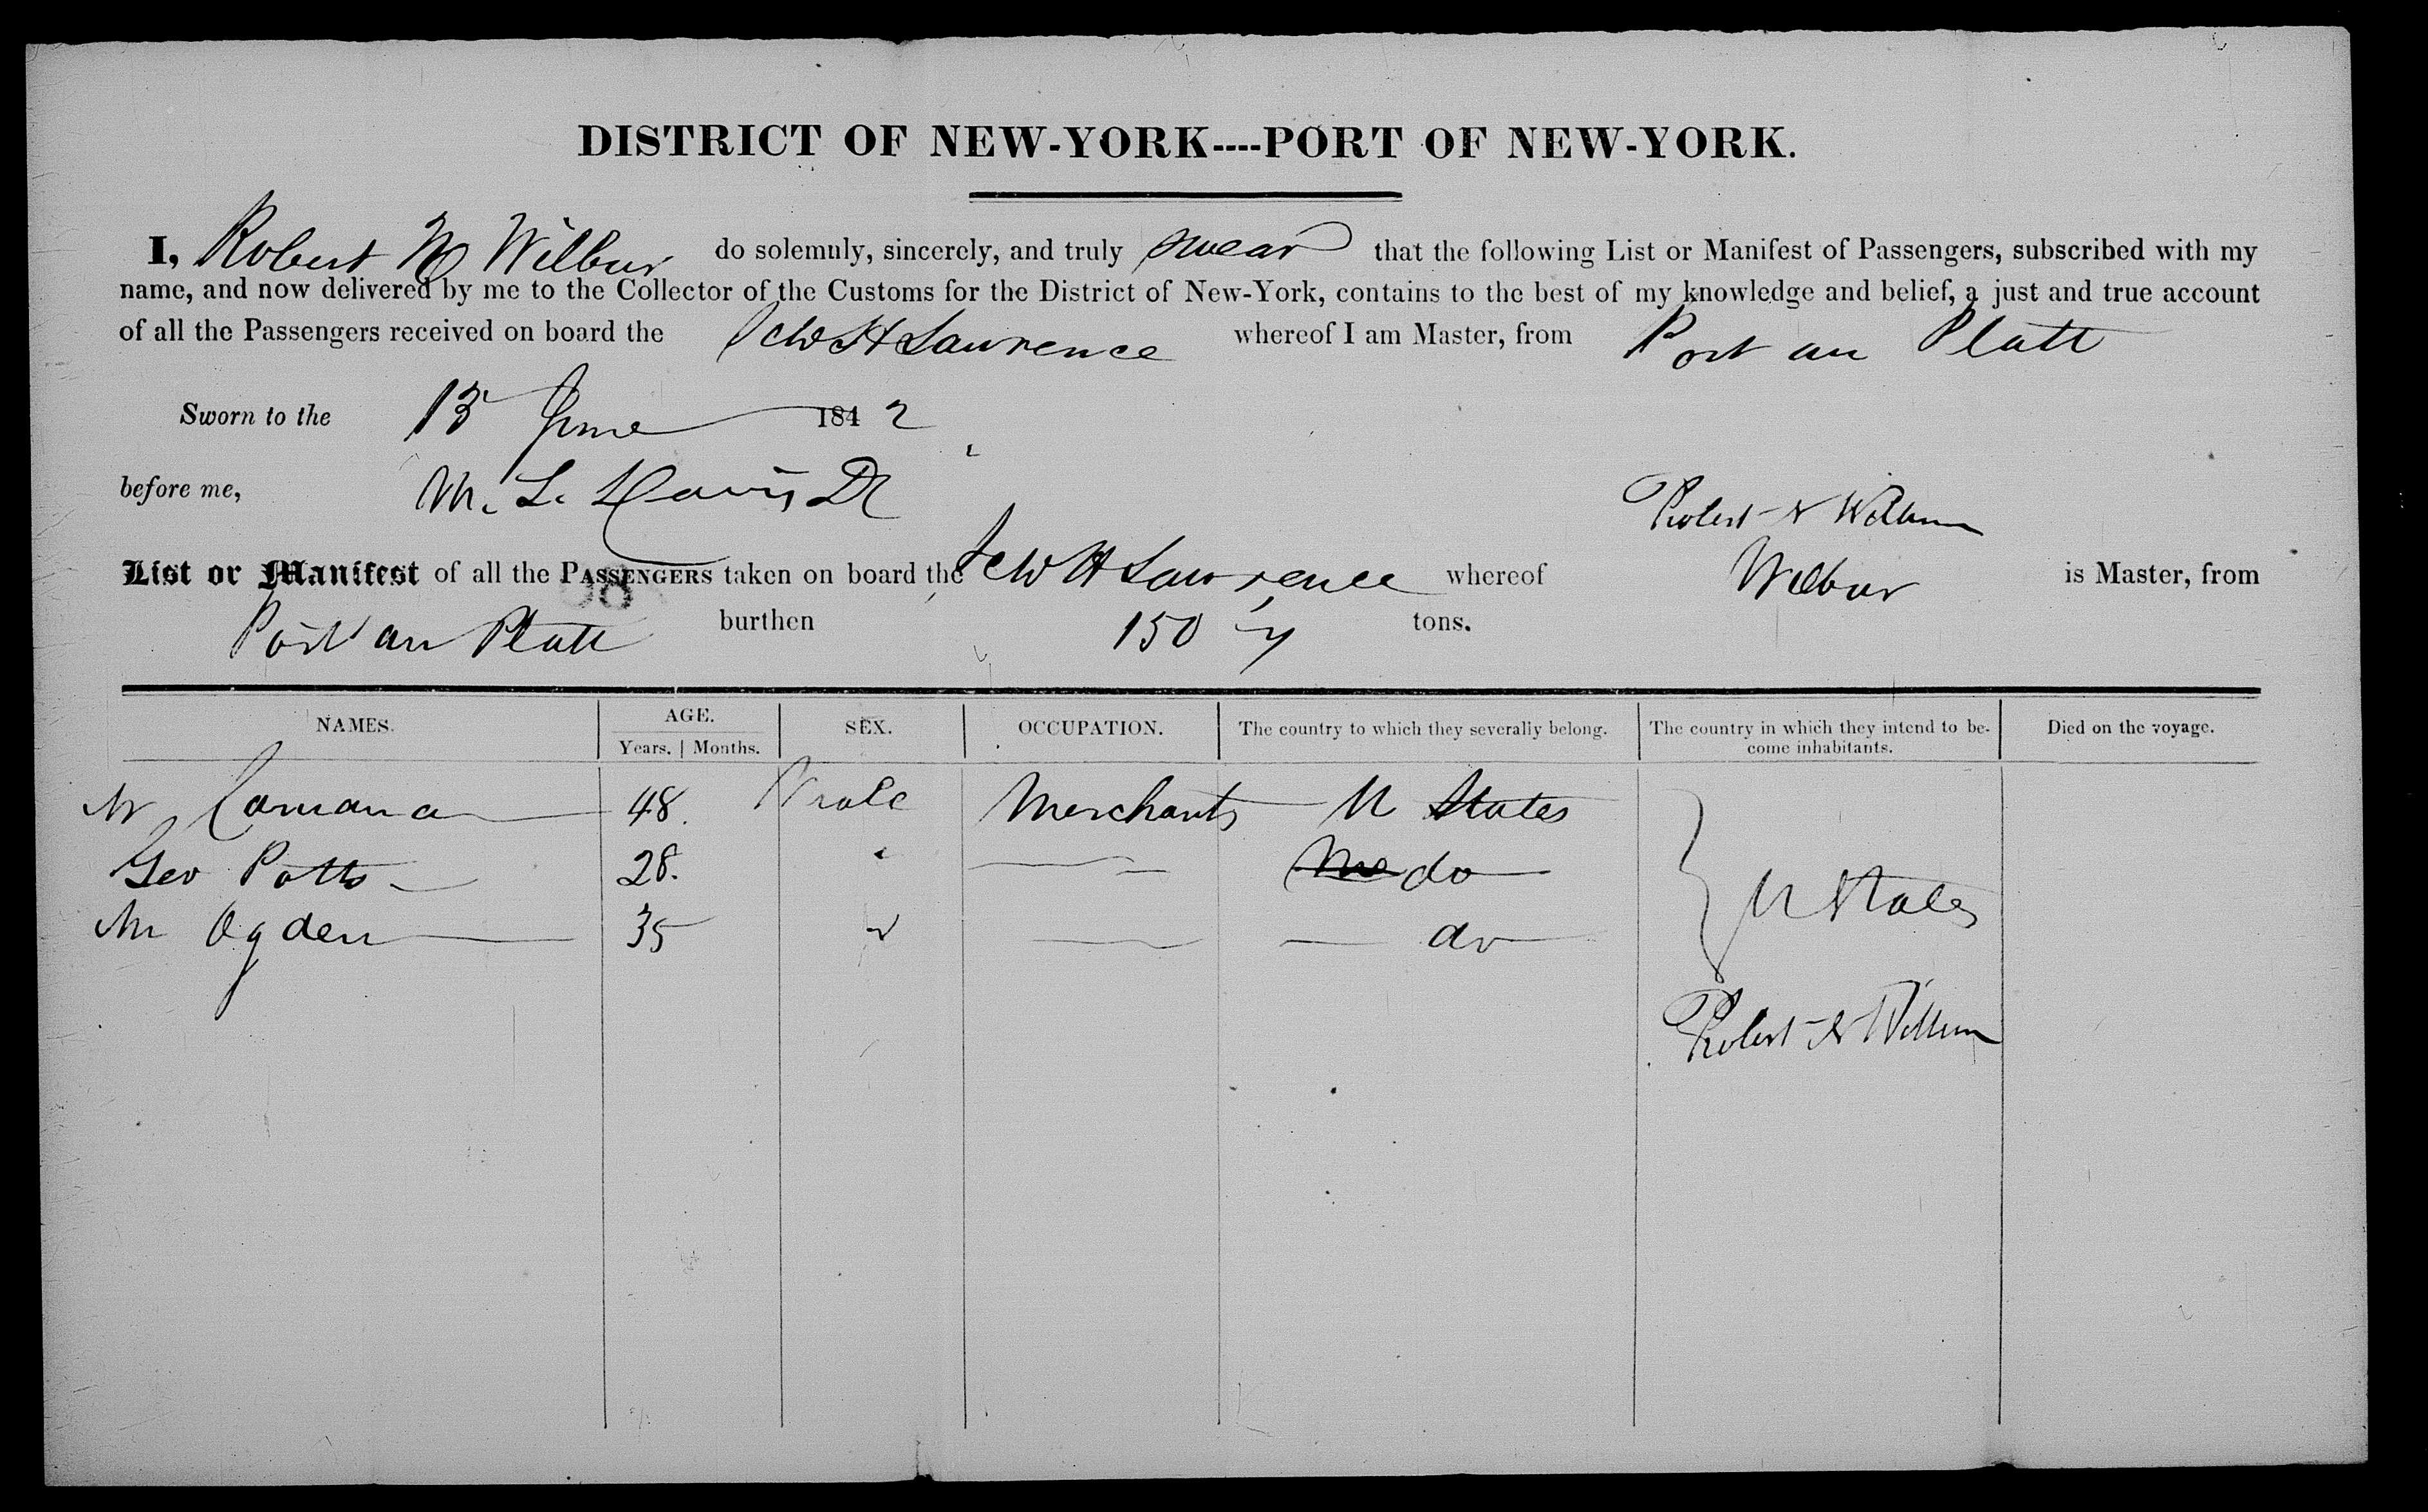 DISTRICT OF NEW-YORK----PORT OF NEW-YORK.
I, Robert N Wilbur do solemnly, sincerely, and truly swear that the following List or Manifest of Passengers, subscribed with my
name, and now delivered by me to the Collector of the Customs for the District of New-York, contains to the best of my knowledge and belief, a just and true account
of all the Passengers received on board the Sch W H Lawrence whereof I am Master, from Port au Platt
Sworn to the 13 June 1842
before me, M. L. Davis
Robert N Wilbur
List or Manifest of all the PASSENGERS taken on board the Sch W H Lawrence whereof Wilbur is Master, from
Port au Platt burthen 150 tons.
NAMES. AGE. Years. | Months. SEX. OCCUPATION. The country to which they severally belong. The country in which they intend to be-come inhabitants. Died on the voyage.
48. Male Merchants U States
Geo Potts 28. " do
Mr Ogden 35 " do
U States
Robert N Wilbur